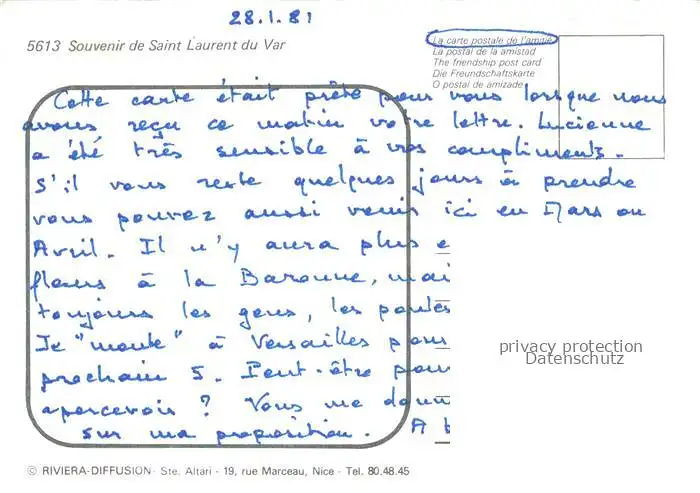 28.1.81
5613 Souvenir de Saint Laurent du Var
La carte postale de l'amitié
La postal de la amistad
The friendship post card
Die Freundschaftskarte
O postal de amizade
Cette carte était prête pour vous lorsque nous
avons reçu ce matin votre lettre. Lucienne
a été très sensible à vos compliments.
S'il vous reste quelques jours à prendre
vous pouvez aussi venir ici en Mars ou
Avril. Il n'y aura plus
fleurs à la Baronne, mai
toujours les gens, les
Je "monte" à Versailles pour
prochain 5. Peut-être pour
apercevoir ? Vous me donn
sur ma proposition. A b
privacy protection
Datenschutz
© RIVIERA-DIFFUSION - Ste. Altari - 19, rue Marceau, Nice - Tel. 80.48.45